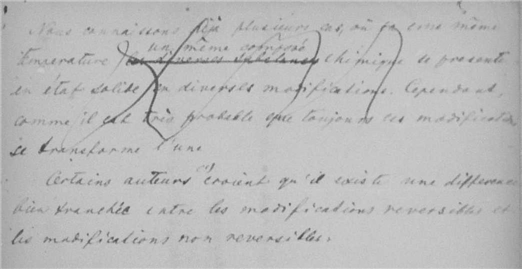 Nous connaissons déjà plusieurs cas, où à une même
un même composé
température les diverses substances chimique se présente
en état solide en diverses modifications. Cependant,
comme il est très probable que toujours ces modifications
se transforme l'une
Certains auteurs (1) croient qu'il existe une difference
bien tranchée entre les modifications reversibles et
les modifications non reversibles.